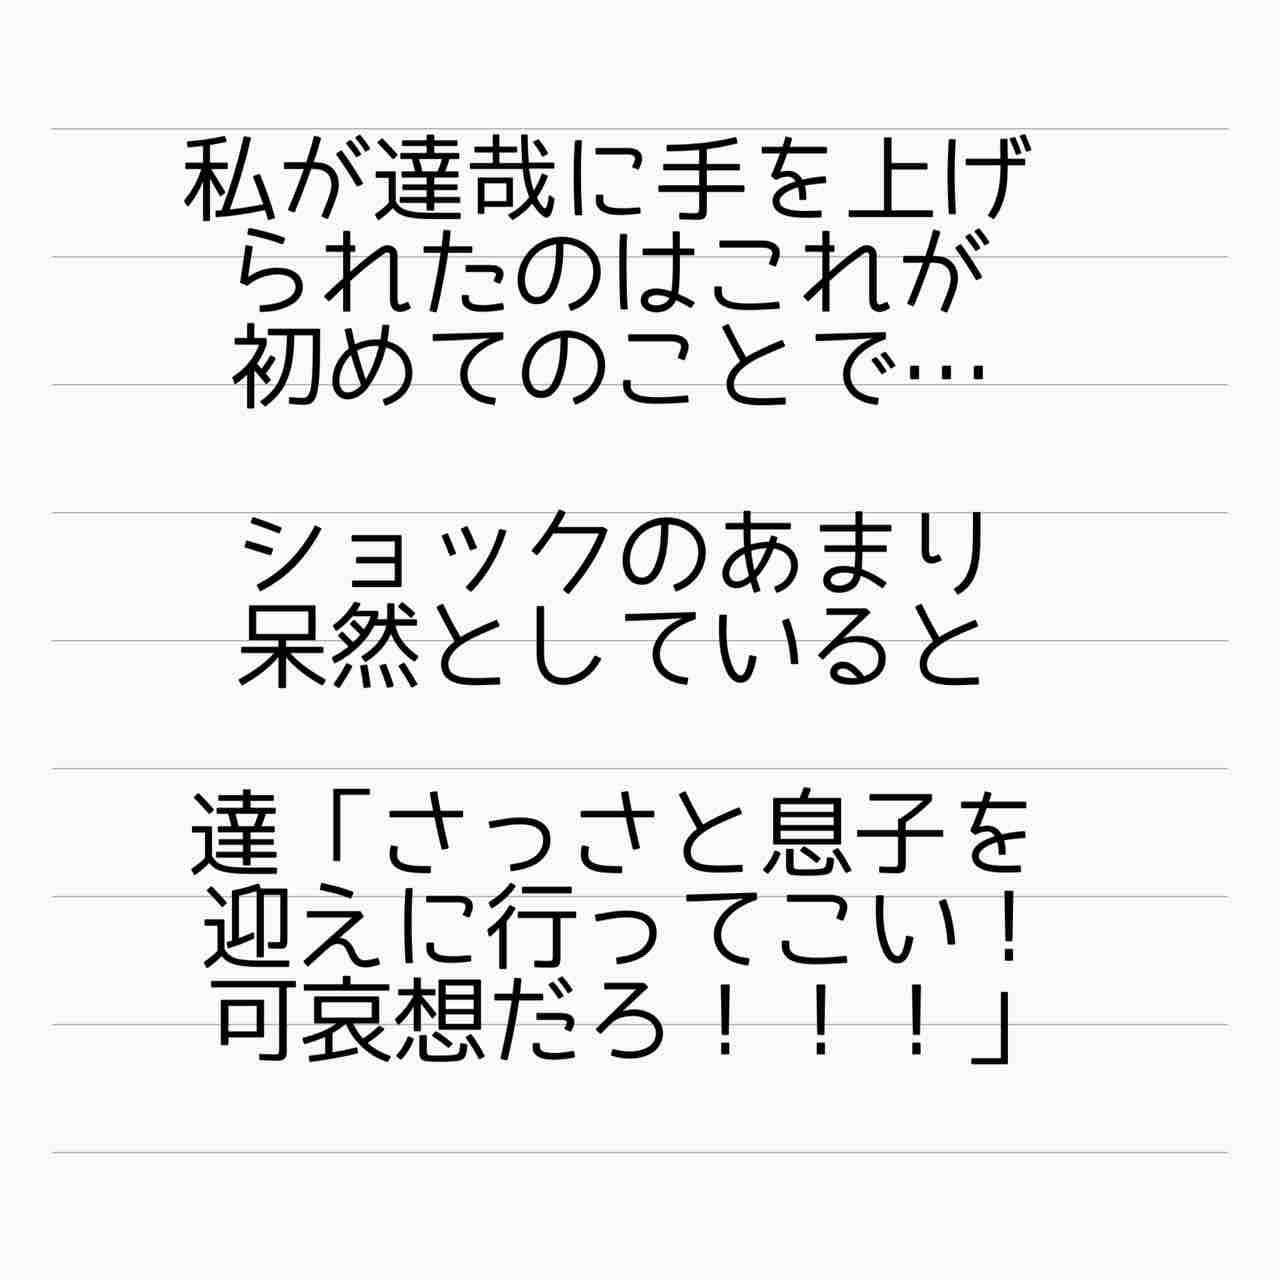 私が達哉に手を上げ
られたのはこれが
初めてのことで…
ショックのあまり
呆然としていると
達「さっさと息子を
迎えに行ってこい！
可哀想だろ！！！」